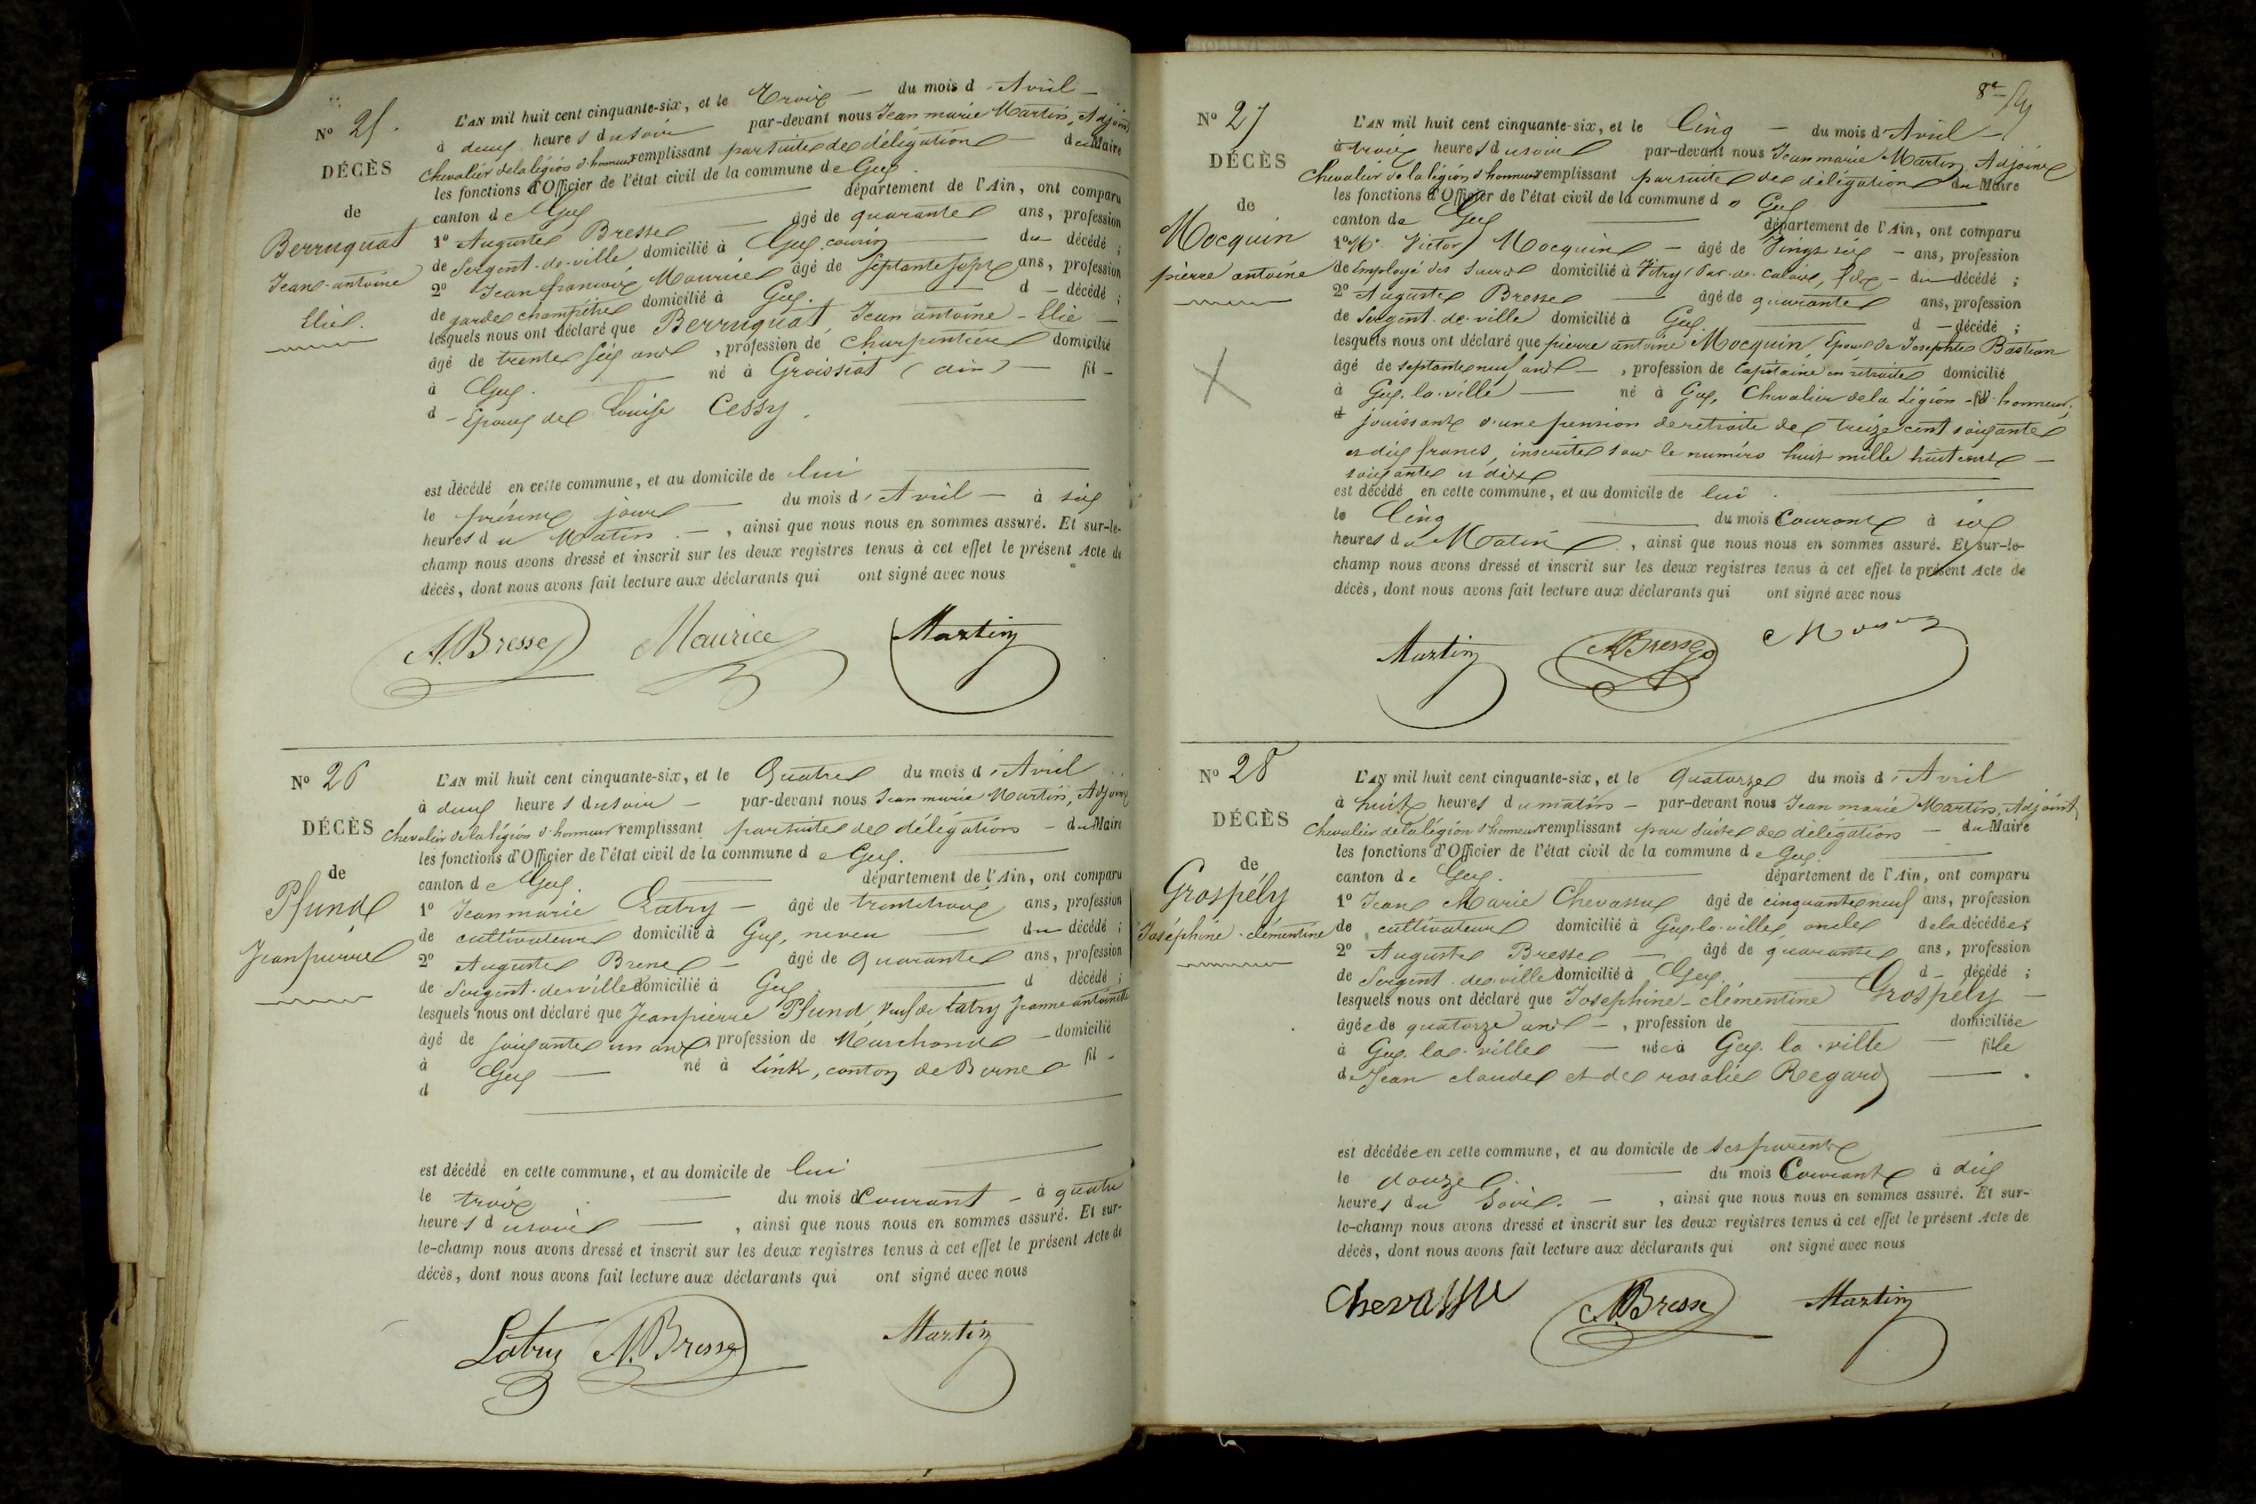 No 25.
DÉCÈS
de
Berruquat
Jean-antoine
Elie.
L'AN mil huit cent cinquante-six, et le Trois — du mois d'Avril —
à deux heures du soir par-devant nous Jean marie Martin, Adjoint
Chevalier de la légion d'honneur remplissant par suite de délégation — du Maire
les fonctions d'Officier de l'état civil de la commune de Gex
canton de Gex — département de l'Ain, ont comparu
1º Auguste Bresse — âgé de quarante ans, profession
de Sergent-de-ville domicilié à Gex, cousin — du décédé ;
2º Jean françois Maurice âgé de septante sept ans, profession
de garde champêtre domicilié à Gex. — d — décédé ;
lesquels nous ont déclaré que Berruquat, Jean antoine - Elie —
âgé de trente six ans , profession de Charpentier domicilié
à Gex. — né à Groissiat (ain) — fil -
d - Epoux de Louise Cessy.
est décédé en cette commune, et au domicile de lui —
le présent jour — du mois d'Avril — à six
heures du Matin. — , ainsi que nous nous en sommes assuré. Et sur-le-
champ nous avons dressé et inscrit sur les deux registres tenus à cet effet le présent Acte de
décès, dont nous avons fait lecture aux déclarants qui ont signé avec nous
A. Bresse Maurice Martin
No 26
DÉCÈS
de
Pfund
Jean pierre
L'AN mil huit cent cinquante-six, et le Quatre du mois d'Avril
à deux heures du soir — par-devant nous Jean marie Martin, Adjoint
Chevalier de la légion d'honneur remplissant par suite de délégation — du Maire
les fonctions d'Officier de l'état civil de la commune de Gex.
canton de Gex. — département de l'Ain, ont comparu
1º Jean marie Latry — âgé de trente trois ans, profession
de cultivateur domicilié à Gex, neveu — du décédé ;
2º Auguste Bresse — âgé de quarante ans, profession
de Sergent-de-ville domicilié à Gex — d décédé ;
lesquels nous ont déclaré que Jean pierre Pfund, Veuf de Latry Jeanne antoinette
âgé de soixante un ans profession de Marchand — domicilié
à Gex — né à Link, canton de Berne fil -
d
est décédé en cette commune, et au domicile de lui —
le trois — du mois d Courant — à quatre
heures du soir — , ainsi que nous nous en sommes assuré. Et sur-
le-champ nous avons dressé et inscrit sur les deux registres tenus à cet effet le présent Acte de
décès, dont nous avons fait lecture aux déclarants qui ont signé avec nous
Latry A. Bresse Martin
8e
No 27
DÉCÈS
de
Mocquin
pierre antoine
L'AN mil huit cent cinquante-six, et le Cinq — du mois d'Avril —
à trois heures du soir par-devant nous Jean marie Martin, Adjoint
Chevalier de la légion d'honneur remplissant par suite de délégation du Maire
les fonctions d'Officier de l'état civil de la commune de Gex
canton de Gex — département de l'Ain, ont comparu
1º Mr. Victor Mocquin — âgé de Vingt six — ans, profession
de Employé des Sucres domicilié à Vitry, Pas-de-Calais, fils - du décédé ;
2º Auguste Bresse — âgé de quarante ans, profession
de Sergent-de-ville domicilié à Gex. — d — décédé ;
lesquels nous ont déclaré que pierre antoine Mocquin, Epoux de Josephte Bastian
âgé de septante neuf ans — , profession de Capitaine en retraite domicilié
à Gex-la-ville — né à Gex, Chevalier de la Légion - d'honneur,
d jouissant d'une pension de retraite de treize cent soixante
et dix francs, inscrite sous le numéro huit mille huit cent —
soixante et dix
est décédé en cette commune, et au domicile de lui.
le Cinq — du mois Courant à six
heures du Matin , ainsi que nous nous en sommes assuré. Et sur-le-
champ nous avons dressé et inscrit sur les deux registres tenus à cet effet le présent Acte de
décès, dont nous avons fait lecture aux déclarants qui ont signé avec nous
Martin A. Bresse
No 28
DÉCÈS
de
Grospély
Joséphine-clémentine
L'AN mil huit cent cinquante-six, et le Quatorze du mois d'Avril
à huit heures du matin — par-devant nous Jean marie Martin, Adjoint
Chevalier de la légion d'honneur remplissant par suite de délégation — du Maire
les fonctions d'Officier de l'état civil de la commune de Gex.
canton de Gex. — département de l'Ain, ont comparu
1º Jean Marie Chevassu âgé de cinquante neuf ans, profession
de cultivateur domicilié à Gex-la-ville, oncle de la décédée ;
2º Auguste Bresse — âgé de quarante ans, profession
de Sergent-de-ville domicilié à Gex. — d — décédé ;
lesquels nous ont déclaré que Josephine-clémentine Grospély —
âgée de quatorze ans — , profession de — domiciliée
à Gex-la-ville — née à Gex-la-ville — fille
de Jean claude et de rosalie Regard — .
est décédée en cette commune, et au domicile de ses parents
le douze. — du mois Courant à dix
heures du Soir. — , ainsi que nous nous en sommes assuré. Et sur-
le-champ nous avons dressé et inscrit sur les deux registres tenus à cet effet le présent Acte de
décès, dont nous avons fait lecture aux déclarants qui ont signé avec nous
Chevassu A. Bresse Martin